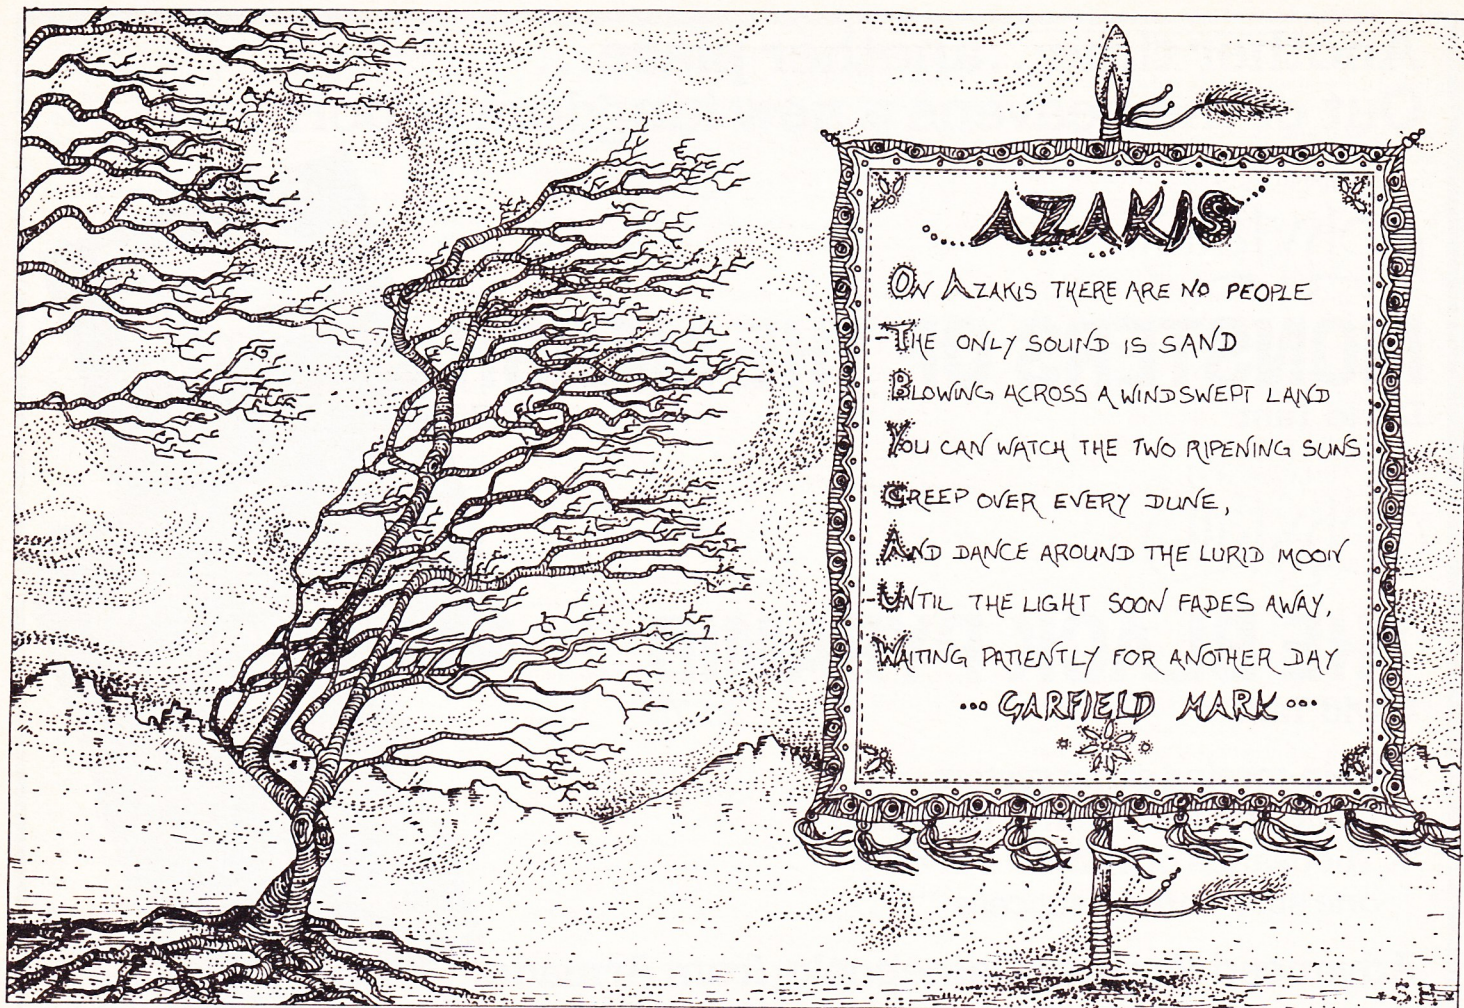 AZAKIS
ON AZAKIS THERE ARE NO PEOPLE
THE ONLY SOUND IS SAND
BLOWING ACROSS A WINDSWEPT LAND
YOU CAN WATCH THE TWO RIPENING SUNS
CREEP OVER EVERY DUNE,
AND DANCE AROUND THE LURID MOON
UNTIL THE LIGHT SOON FADES AWAY,
WAITING PATIENTLY FOR ANOTHER DAY
... GARFIELD MARK ...